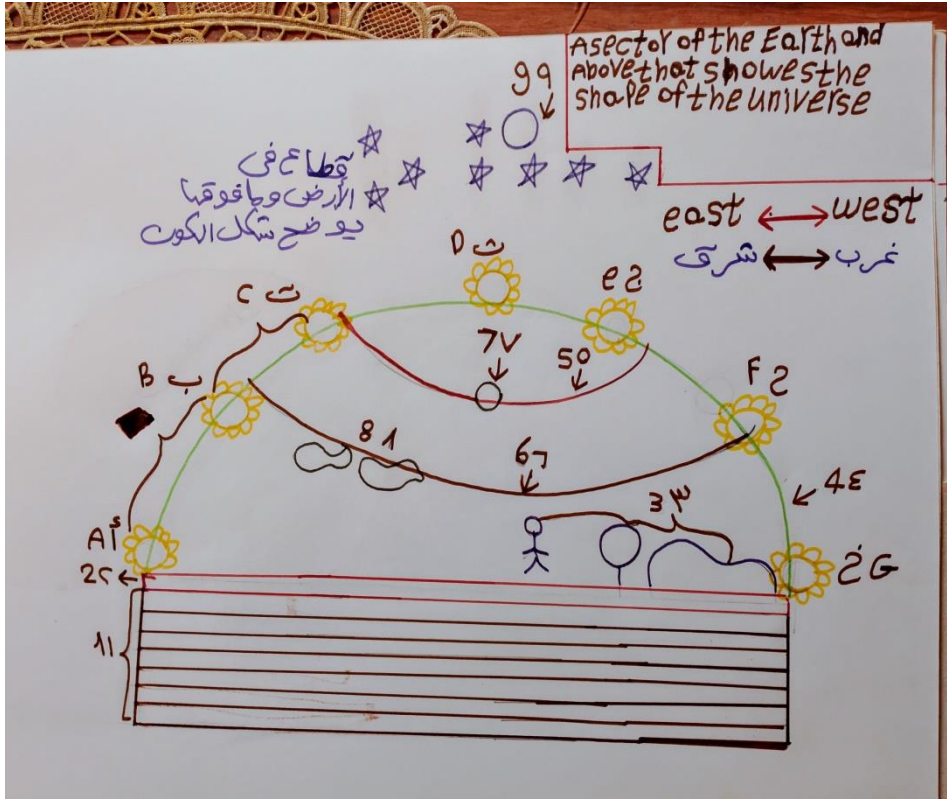 A sector of the Earth and
Above that showes the
shape of the universe
99
قطاع في
الأرض وما فوقها
يوضح شكل الكون
east ↔ west
شرق ↔ غرب
D ث
C ت
e ج
B ب
7٧
5٥
F ح
8٨
6٦
3٣
4٤
A أ
2٢
خ G
1١